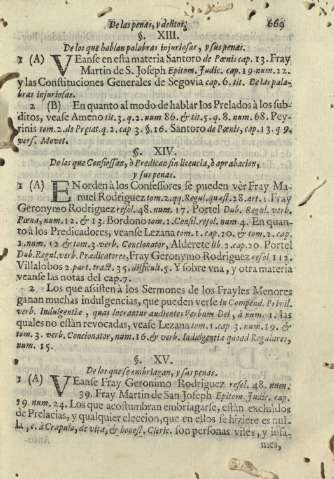 De las penas, y delitos,
669
§. XIII.
De los que hablan palabras injuriosas, y sus penas.
1 (A) VEanse en esta materia Santoro de Pœnis cap. 13. Fray
Martin de S. Joseph Epitom. Judic. cap. 19. num. 22.
y las Constituciones Generales de Segovia cap. 6. tit. De las pala-
bras injuriosas.
2 (B) En quanto al modo de hablar los Prelados à los sub-
ditos, vease Ameno tit. 3. q. 2. num 86. & tit. 5. q. 8. num. 68. Pey-
rinis tom. 2. de Prælat. q. 2. cap 3. §. 16. Santoro de Pœnis, cap. 13. q. 9.
vers. Movet.
§. XIV.
De los que Confiessan, ò Predican sin licencia, ò aprobacion,
y sus penas.
1 (A) EN orden à los Confessores se pueden vèr Fray Ma-
nuel Rodriguez tom. 2. qq. Regul. quæst. 28. art. 1. Fray
Geronymo Rodriguez resol. 48. num. 17. Portel Dub. Regul. verb.
Pœna, num. 12. & 13. Bordono tom. 1. Consil. resol. num 4. En quan-
to à los Predicadores, veanse Lezana tom. 1. cap. 20. & tom. 2. cap.
2. num. 12 & tom. 3. verb. Concionator, Alderete lib 2. cap. 20. Portel
Dub. Regul. verb. Prædicatores, Fray Geronymo Rodriguez resol 112.
Villalobos 2. part. tract. 35. difficult. 5. Y sobre vna, y otra materia
veanse las notas del cap. 7.
2 Los que assisten à los Sermones de los Frayles Menores
ganan muchas indulgencias, que pueden verse in Compend. Privil.
verb. Indulgentiæ, quas lucrantur audientes Verbum Dei, à num. 1. las
quales no estàn revocadas, vease Lezana tom. 1. cap 3. num. 19. &
tom. 3. verb. Concionator, num. 16. & verb. Indulgentia quoad Regulares,
num. 15.
§. XV.
De los que se embriagan, y sus penas.
1 (A) VEanse Fray Geronimo Rodriguez resol. 48. num.
39. Fray Martin de San Joseph Epitom. Judic. cap.
19. num. 24. Los que acostumbran embriagarse, estàn excluidos
de Prelacias, y qualquier eleccion, que en ellos se hiziere es nul-
la, c. à Crapula, de vita, & honest. Cleric. son personas viles, y infa-
mes,